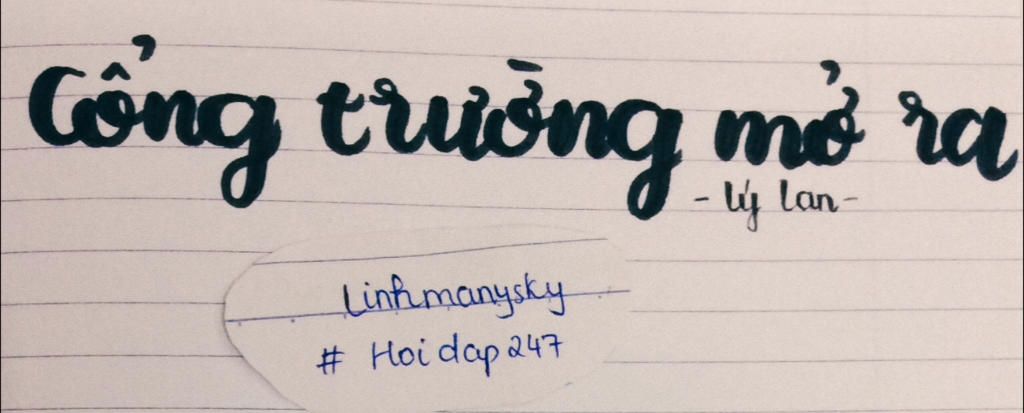 Cổng trường mở ra
- Lý Lan -
Linhmanysky
# Hoidap247